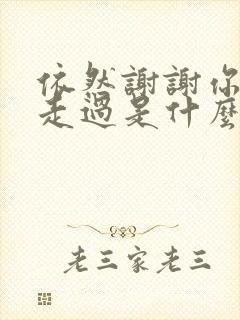 依然謝謝你
走過是什麼
老三家老三